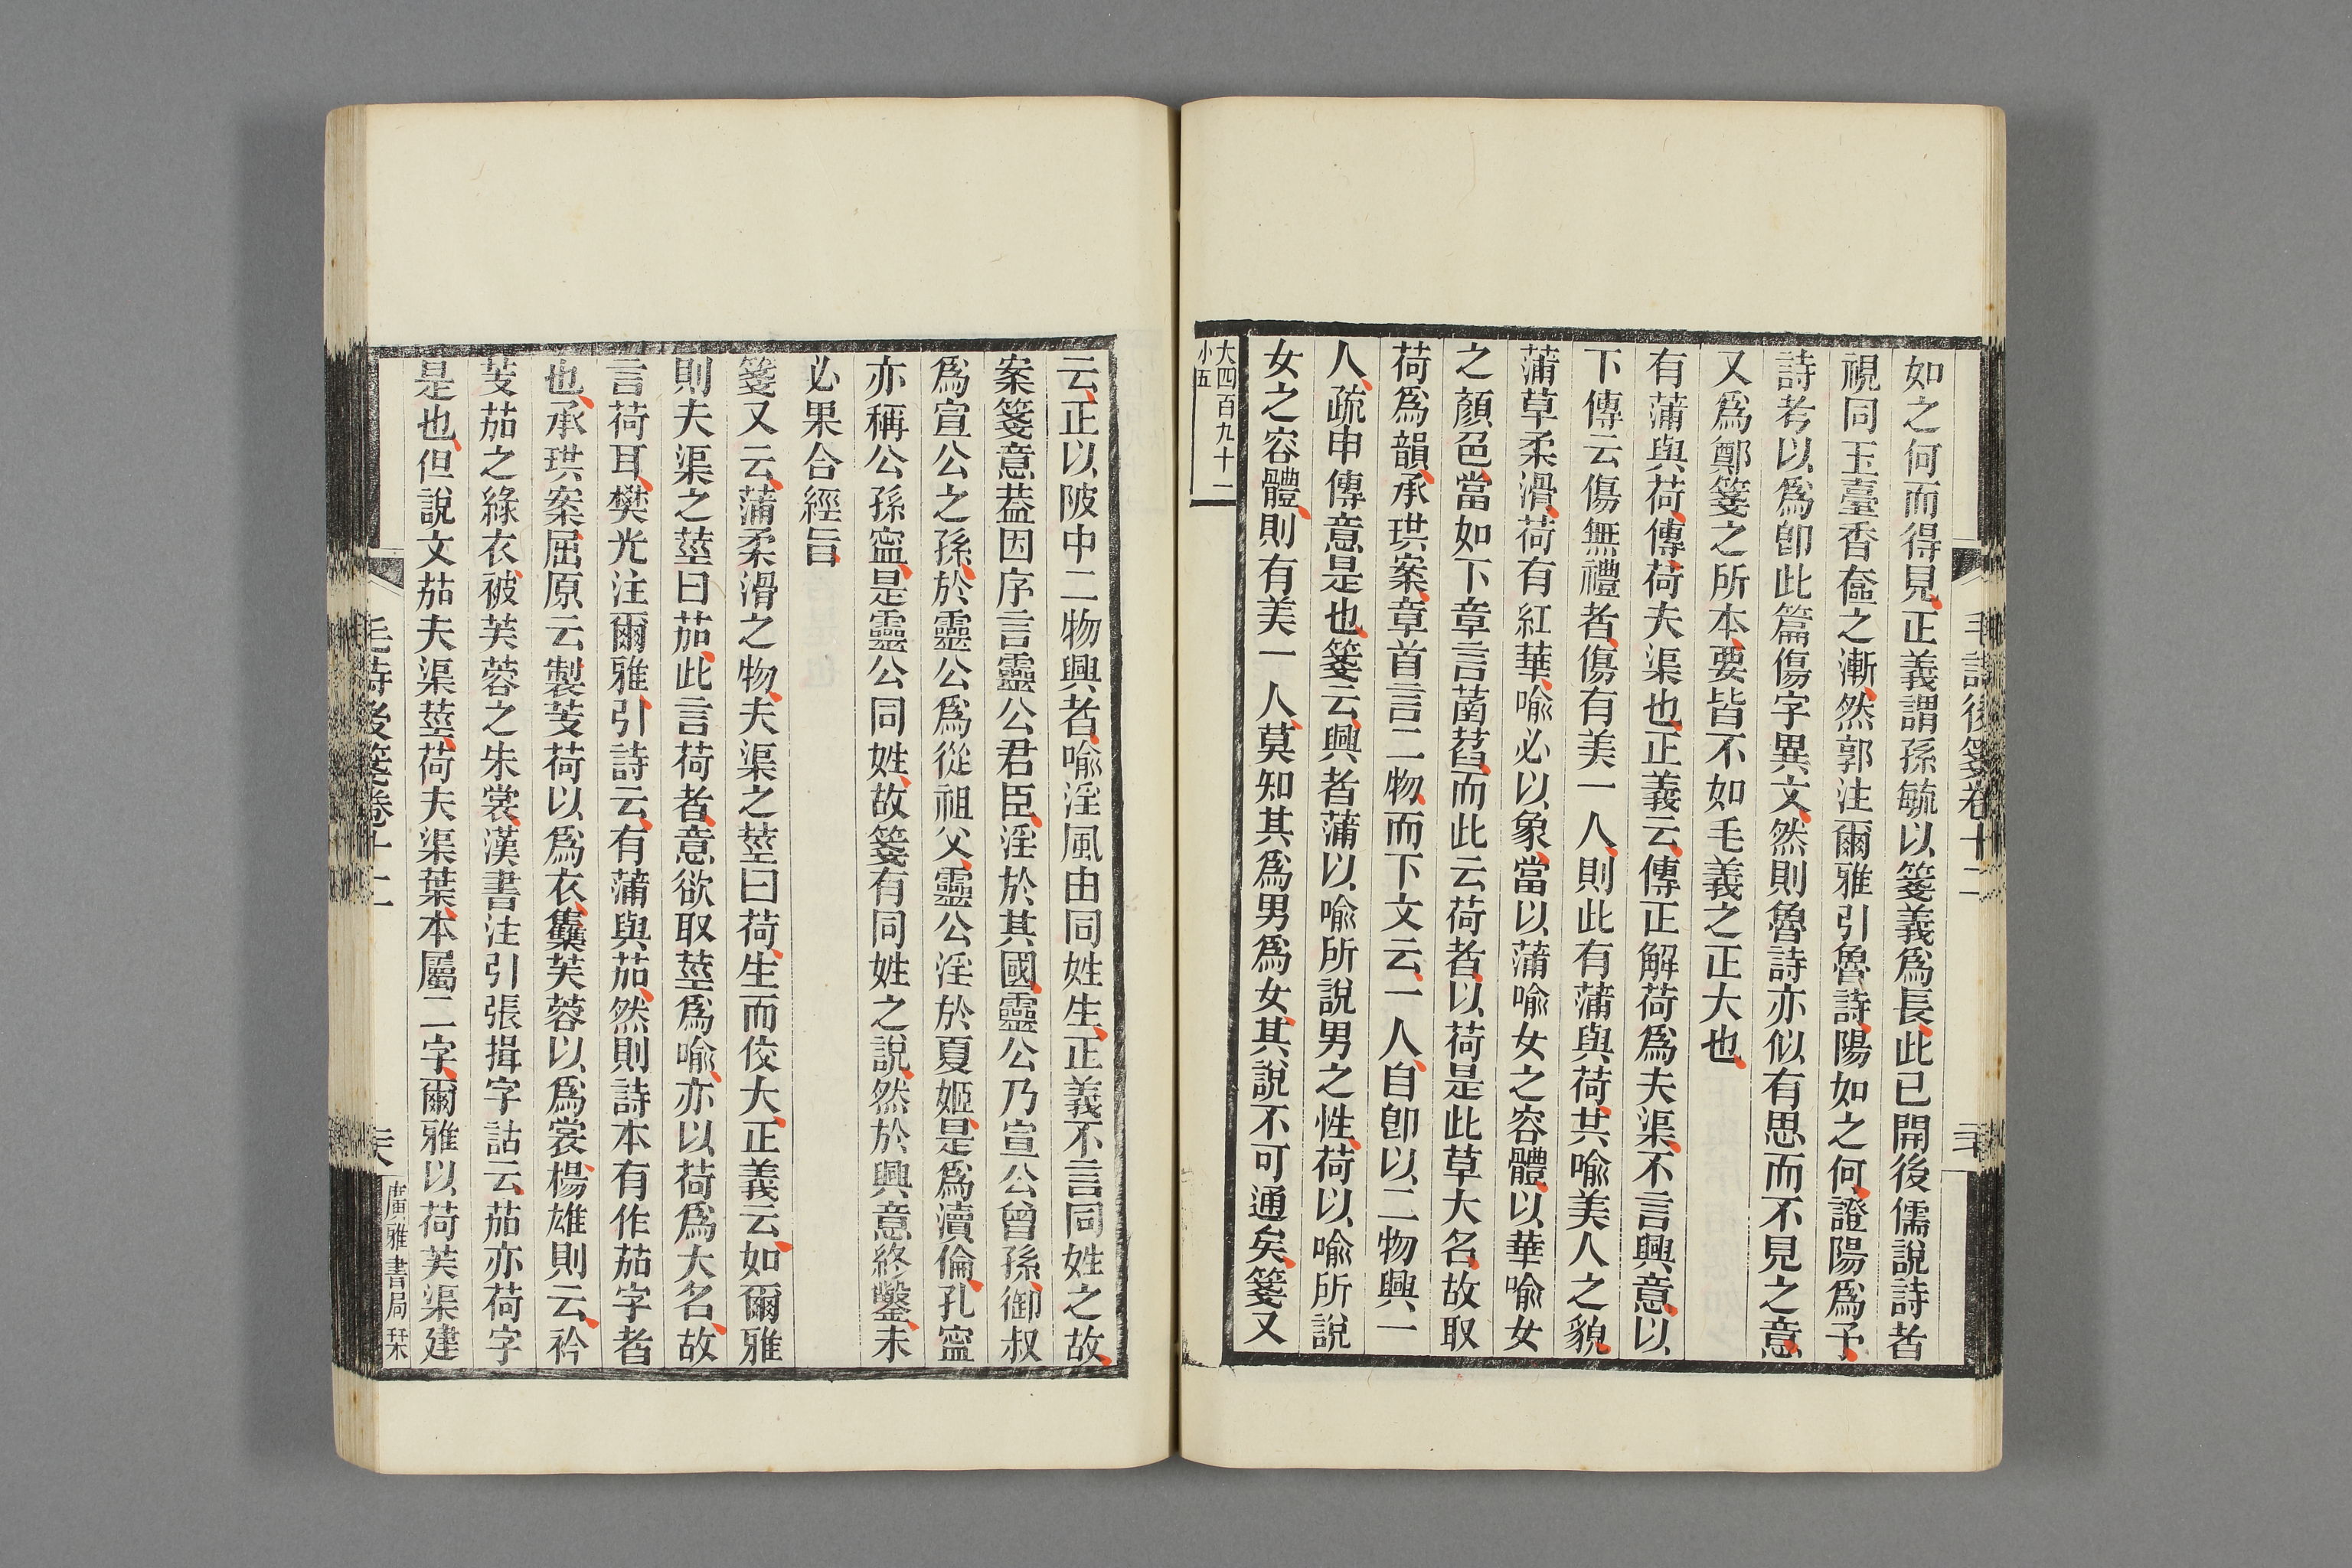 毛詩後箋卷十二
如之何而得見正義謂孫毓以箋義爲長此已開後儒說詩者
視同玉臺香奩之漸然郭注爾雅引魯詩陽如之何證陽爲予
詩考以爲卽此篇傷字異文然則魯詩亦似有思而不見之意
又爲鄭箋之所本要皆不如毛義之正大也
有蒲與荷傳荷夫渠也正義云傳正解荷爲夫渠不言興意以
下傳云傷無禮者傷有美一人則此有蒲與荷共喻美人之貌
蒲草柔滑荷有紅華喻必以象當以蒲喻女之容體以華喻女
之顏色當如下章言菡萏而此云荷者以荷是此草大名故取
荷爲韻承珙案章首言二物而下文云一人自卽以二物興一
人疏申傳意是也箋云興者蒲以喻所說男之性荷以喻所說
女之容體則有美一人莫知其爲男爲女其說不可通矣箋又
大四百九十一
小五
云正以陂中二物興者喻淫風由同姓生正義不言同姓之故
案箋意葢因序言靈公君臣淫於其國靈公乃宣公曾孫御叔
爲宣公之孫於靈公爲從祖父靈公淫於夏姬是爲瀆倫孔寧
亦稱公孫寧是靈公同姓故箋有同姓之說然於興意終鑿未
必果合經旨
箋又云蒲柔滑之物夫渠之莖曰荷生而佼大正義云如爾雅
則夫渠之莖曰茄此言荷者意欲取莖爲喻亦以荷爲大名故
言荷耳樊光注爾雅引詩云有蒲與茄然則詩本有作茄字者
也承珙案屈原云製芰荷以爲衣雧芙蓉以爲裳楊雄則云衿
芰茄之綠衣被芙蓉之朱裳漢書注引張揖字詁云茄亦荷字
是也但說文茄夫渠莖荷夫渠葉本屬二字爾雅以荷芙渠建
毛詩後箋卷十二
廣雅書局栞